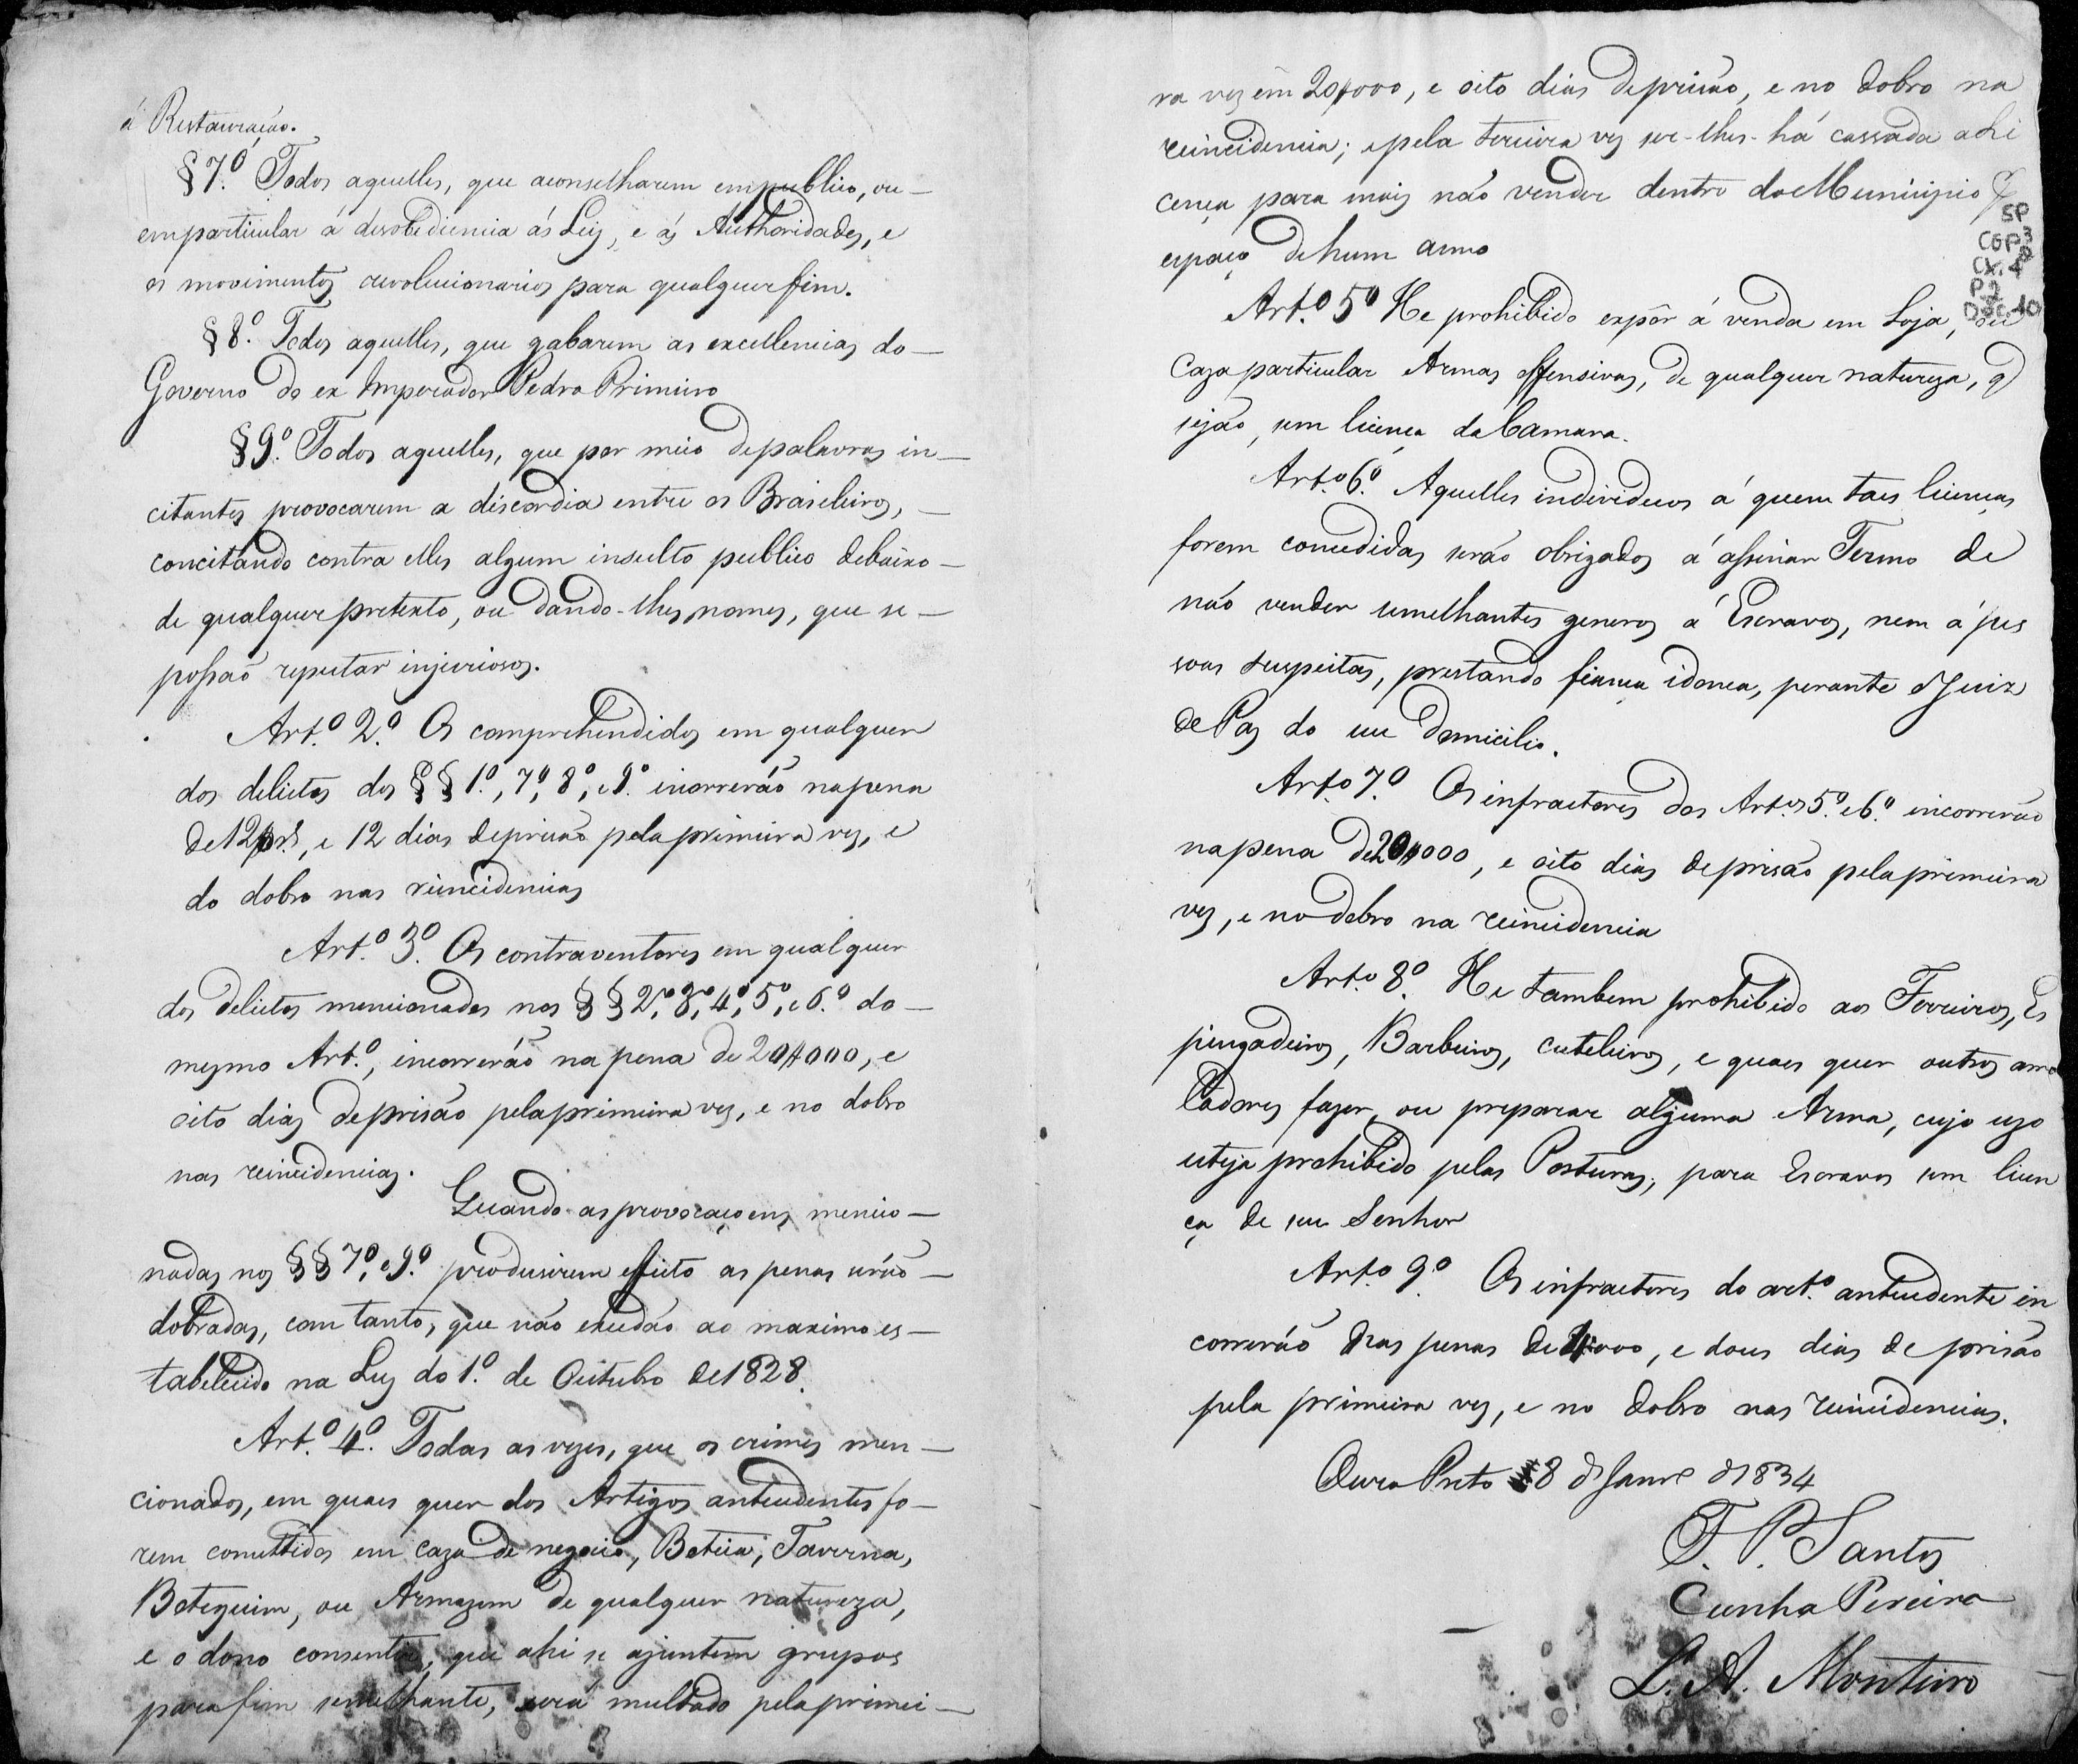 á Restauração.
§ 7.º Todos aquelles, que aconselharem empublico, ou —
emparticular á desobediencia ás Leis, e ás Authoridades, e
os movimentos revolucionarios para qualquer fim.
§ 8.º Todos aquelles, que gabarem as excellencias do —
Governo do ex Imperador Pedro Primeiro
§ 9.º Todos aquelles, que por meio depalavras in —
citantes provocarem a discordia entre os Brasileiros, —
concitando contra elles algum insulto publico debaixo —
de qualquer pretexto, ou dando-lhes nomes, que se —
possaõ reputar injuriosos.
Art.º 2.º Os comprehendidos em qualquer
dos delictos dos §§ 1.º, 7.º, 8.º, e 9.º incorreráõ napena
de 12 , e 12 dias deprisaõ pela primeira vez, e
do dobro nas reincidencias
Art.º 3.º Os contraventores em qualquer
dos delictos mencionados nos §§ 2.º, 3.º, 4.º, 5.º, e 6.º do —
mesmo Art.º, incorreráõ na pena de 20$000, e
oito dias deprisão pelaprimeira vez, e no dobro
nas reincidencias.
Quando as provocaçoens mencio —
nadas nos §§ 7.º, e 9.º produsirem effeito as penas seráõ —
dobradas, com tanto, que não excedão ao maximo es —
tabelecido na Ley do 1.º de Outubro de 1828.
Art.º 4.º Todas as vezes, que os crimes men —
cionados, em quaes quer dos Artigos antecedentes fo —
rem comettidos em caza de negocio, Botica, Taverna,
Botequim, ou Armazem de qualquer natureza,
e o dono consentir, que ahi se ajuntem grupos
para fim semelhante, será multado pela primei —
ra vez em 20$000, e oito dias deprisão, e no dobro na
reincidencia; epela terceira vez ser-lhes-há cassada a li
cença para mais não vender dentro do Municipio
espaço dehum anno
SP
CGP3
CX. 4
P. 2
Doc. 10
Art.º 5.º He prohibido expôr á venda em Loja, ou
Caza particular Armas offensivas, de qualquer natureza, q
sejão, sem licença da Camara.
Art.º 6.º Aquelles individuos á quem taes licenças
forem concedidas serão obrigados á assinar Termo de
não vender semelhantes generos á Escravos, nem á pes
soas suspeitas, prestando fiança idonea, perante o Juiz
de Paz do seu Domicilio.
Art.º 7.º Os infractores dos Art.ºs 5.º e 6.º incorrerão
napena de 20$000, e oito dias deprisão pelaprimeira
vez, e no dobro na reincidencia
Art.º 8.º He tambem prohibido aos Ferreiros, Es
pingadeiros, Barbeiros, cuteleiros, e quaes quer outros amo
ladores fazer, ou preparar alguma Arma, cujo uzo
esteja prohibido pelas Posturas, para Escravos sem licen
ça de seu Senhor
Art.º 9.º Os infractores do art.º antecedente in
correráõ nas penas de 4$000, e dous dias de prisão
pela primeira vez, e no dobro nas reincidencias.
Ouro Preto 8 d Janrº d 1834
F. P. Santos
Cunha Pereira
L. A. Monteiro